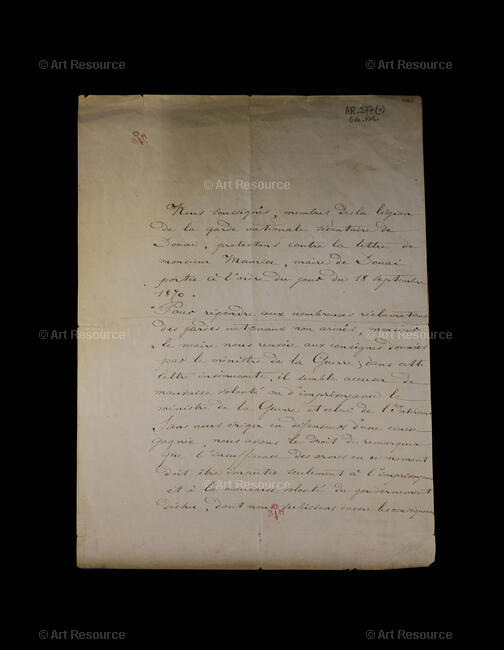 © Art Resource
© Art Resource
AR. 277
Nous soussignés, membres de la légion
de la garde nationale sédentaire de
Douai, protestons contre la lettre de
monsieur Maurice, maire de Douai
portée à l'ordre du jour du 18 septembre
1870.
© Art Resource
"Pour répondre aux nombreuses réclamations
des gardes nationaux non armés, monsieur
© Art Resource
© Art Resource
le maire nous renvoie aux consignes données
par le ministre de la Guerre; dans cette
lettre insinuante, il semble accuser de
mauvaise volonté ou d'imprévoyance le
ministre de la Guerre et celui de l'Intérieur.
Sans nous ériger en défenseurs d'une cause
gagnée, nous avons le droit de remarquer
© Art Resource
que l'insuffisance des armes en ce moment
doit être imputée seulement à l'imprévoyance
et à la mauvaise volonté du gouvernement
déchu, dont nous subissons encore les conséquences
© Art Resource
© Art Resource